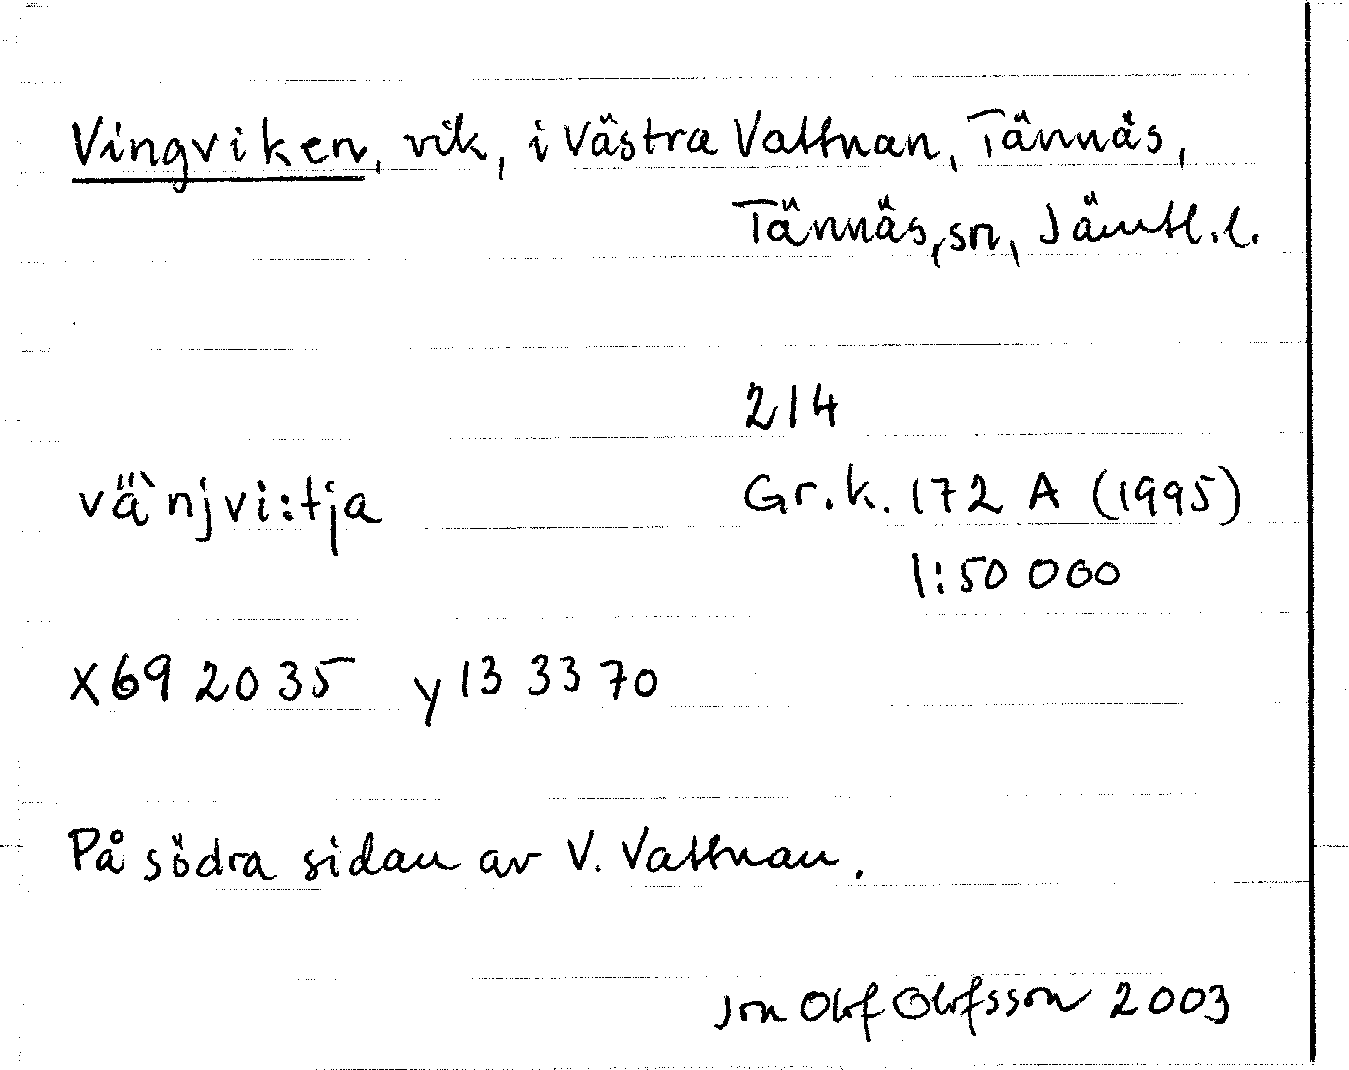 Vingviken, vik, i Västra Vattnan, Tännäs,
Tännäs, sn, Jämtl.l.
214
vä̀njvi:tja Gr.k. 172 A (1995)
1:50 000
x69 20 35 y 13 33 70
På södra sidan av V. Vattnan.
Jon Olof Olofsson 2003